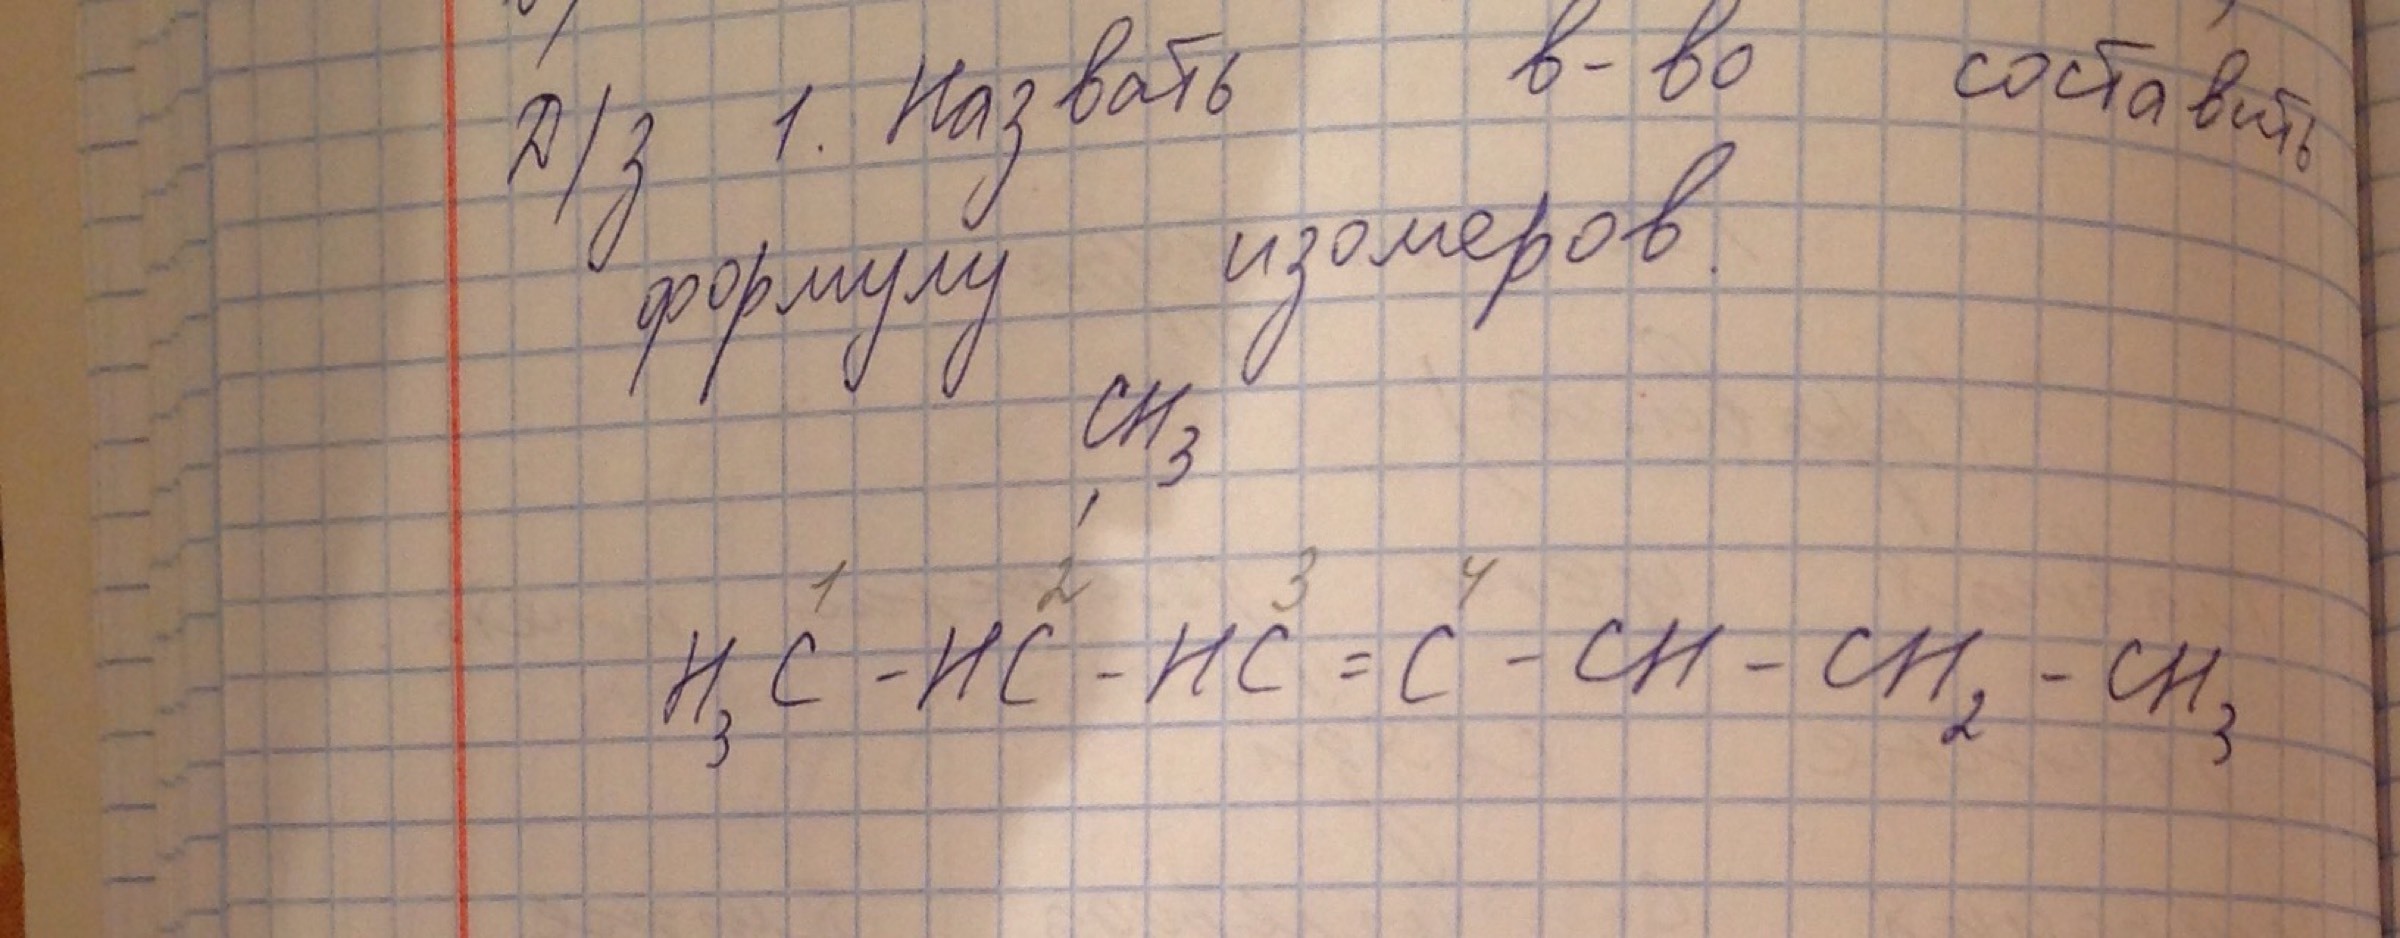 Д/з 1. Назвать в-во составить
формулу изомеров.
CH3
1 2 3 4
H3C - HC - HC = C - CH - CH2 - CH3